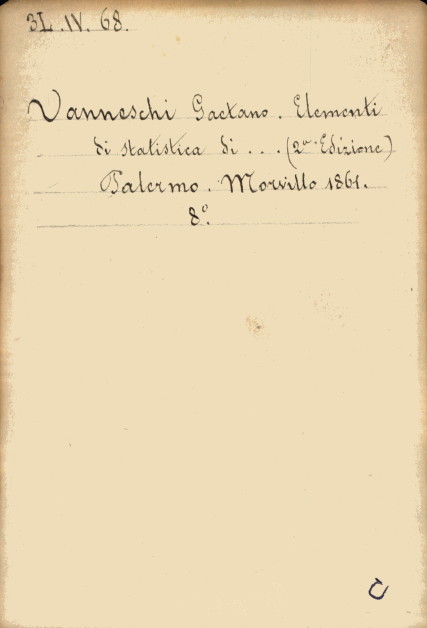 3L.IV. 68.
Vanneschi Gaetano. Elementi
di statistica di . . . (2a Edizione)
Palermo. Morvillo 1861.
8º.
C